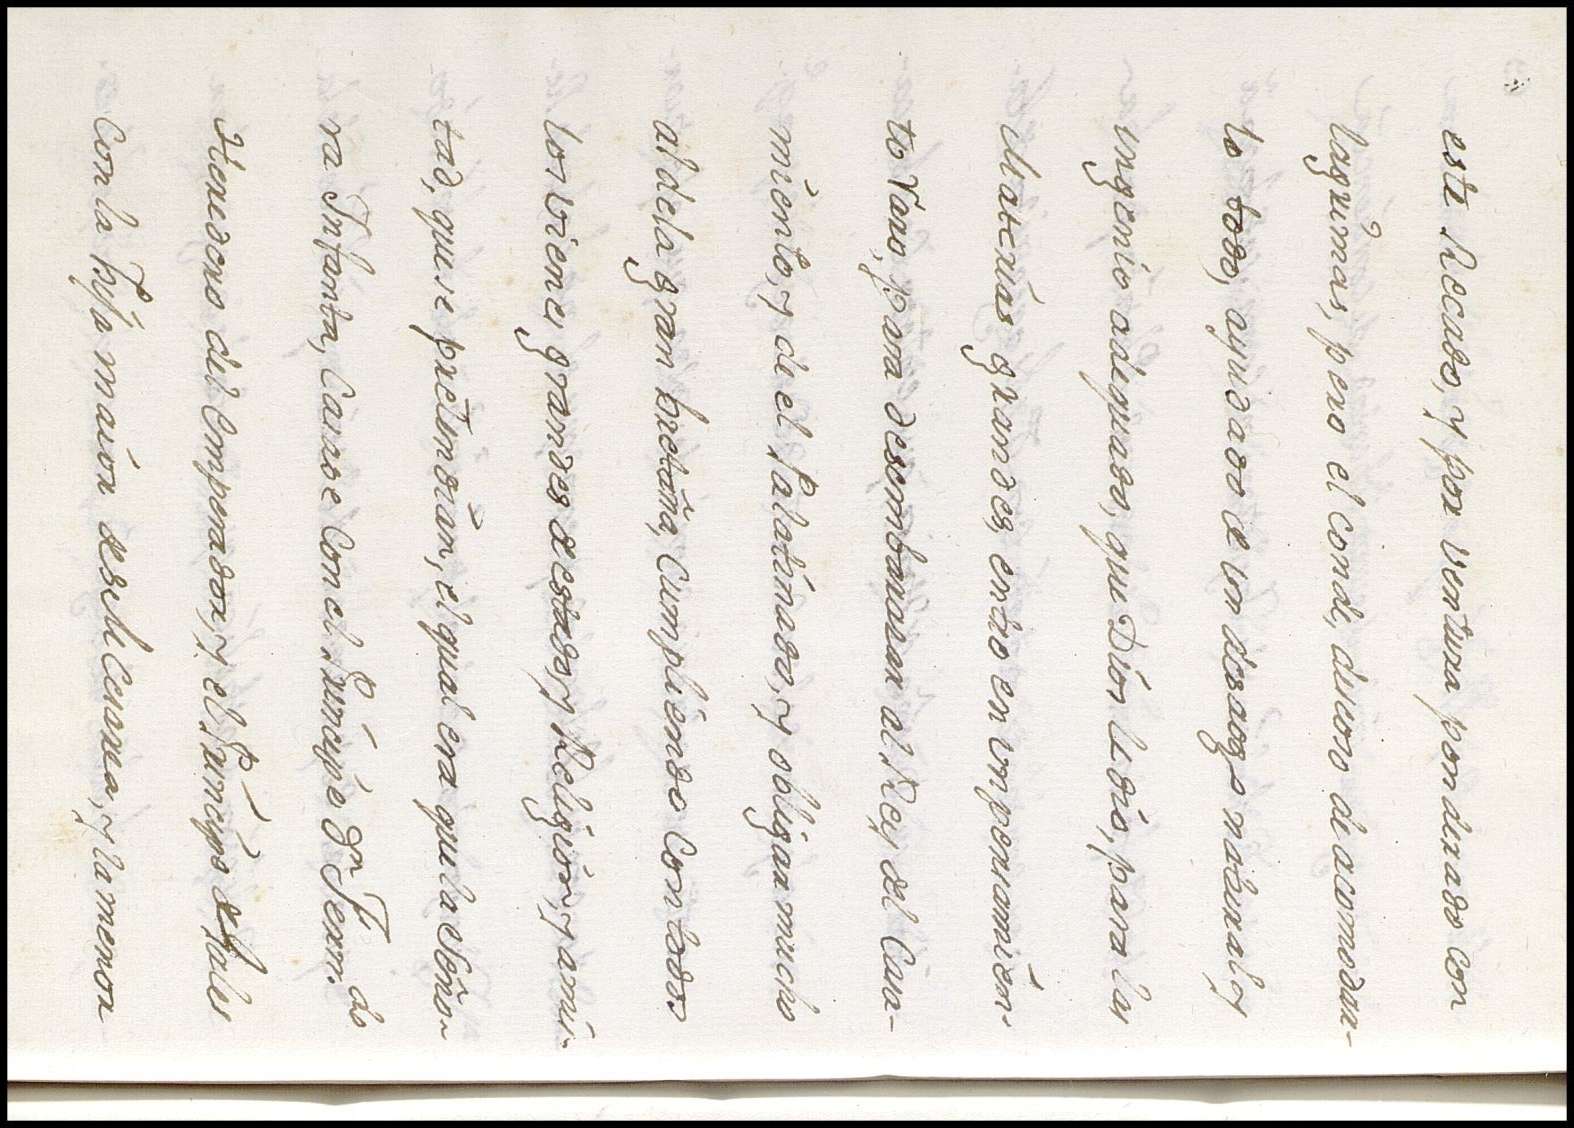 este Reccado, y por ventura ponderado con
lagrimas, pero el conde, duero de acomodar-
lo todo, ayudado de un desaogo natural y
ingenio adequado, que Dios le dio, para las
Materias grandes, entro en un pensamien-
to raro, para desembarazar al Rey del Casa-
miento, y de el Palatinado, y obligar mucho
al dela gran bretaña, Cumpliendo Con todos
los vienes grandes de estado, y Religion, y amis-
tad, que se pretendian, el qual era que la Seño-
ra Infanta, Casase Con el Principe Dn Fernãdo
Heredero del Emperador, y el Principe de Gales
Con la Hija maior de su M Cesarea, y la menor